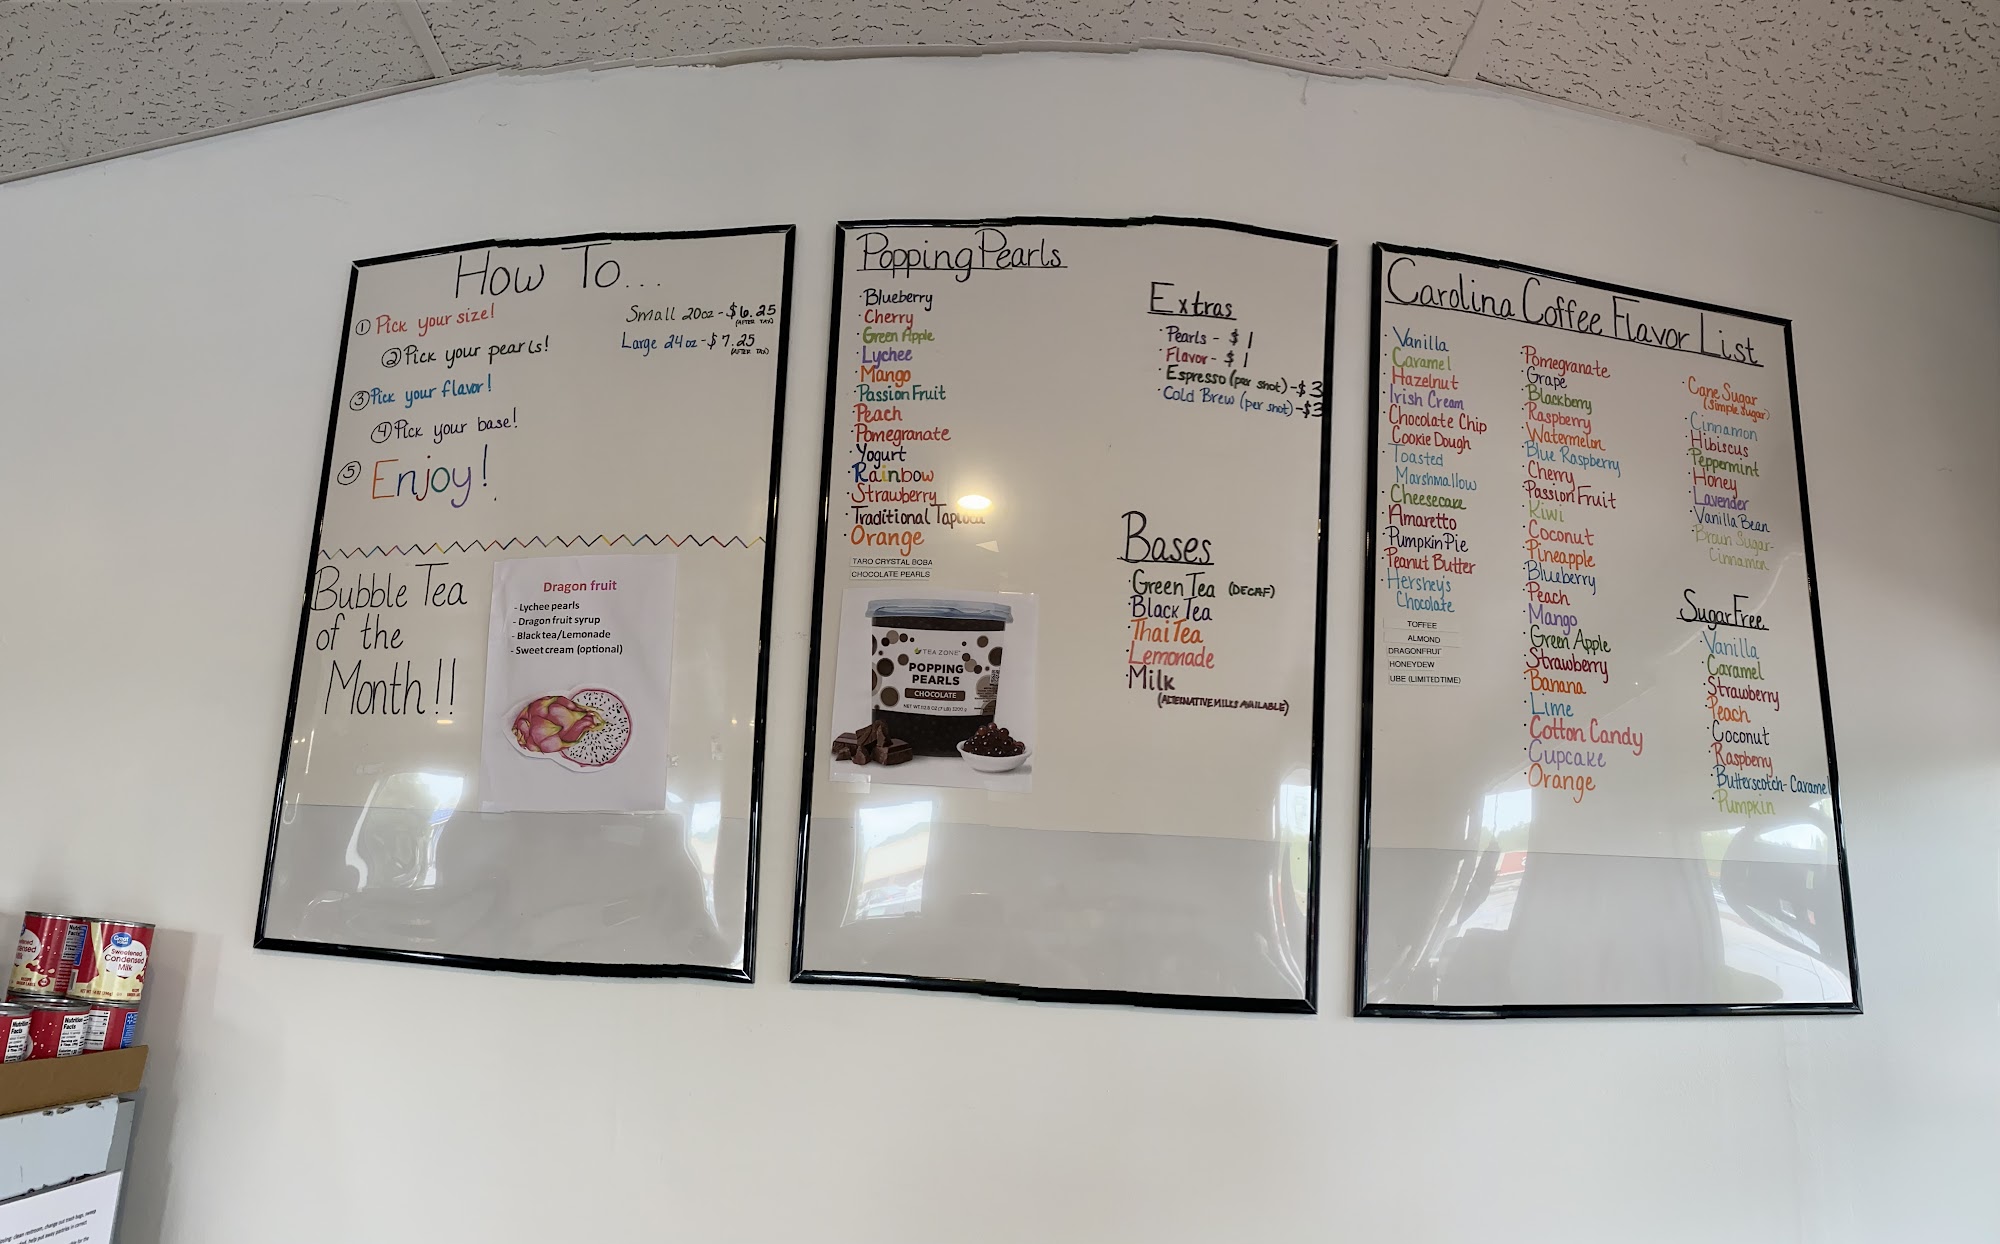 How To...
① Pick your size!
Small 20oz - $6.25
(AFTER TAX)
② Pick your pearls!
Large 24oz - $7.25
(AFTER TAX)
③ Pick your flavor!
④ Pick your base!
⑤ Enjoy!
Bubble Tea
of the
Month!!
Dragon fruit
- Lychee pearls
- Dragon fruit syrup
- Black tea/Lemonade
- Sweet cream (optional)
Popping Pearls
· Blueberry
· Cherry
· Green Apple
· Lychee
· Mango
· Passion Fruit
· Peach
· Pomegranate
· Yogurt
· Rainbow
· Strawberry
· Traditional Tapioca
· Orange
TARO CRYSTAL BOBA
CHOCOLATE PEARLS
TEA ZONE
POPPING
PEARLS
CHOCOLATE
Extras
· Pearls - $1
· Flavor - $1
· Espresso (per shot) - $3
· Cold Brew (per shot) - $3
Bases
· Green Tea (DECAF)
· Black Tea
· Thai Tea
· Lemonade
· Milk
(ALTERNATIVE MILKS AVAILABLE)
Carolina Coffee Flavor List
· Vanilla
· Caramel
· Hazelnut
· Irish Cream
· Chocolate Chip
Cookie Dough
· Toasted
Marshmallow
· Cheesecake
· Amaretto
· Pumpkin Pie
· Peanut Butter
· Hershey's
Chocolate
TOFFEE
ALMOND
DRAGONFRUIT
HONEYDEW
UBE (LIMITED TIME)
· Pomegranate
· Grape
· Blackberry
· Raspberry
· Watermelon
· Blue Raspberry
· Cherry
· Passion Fruit
· Kiwi
· Coconut
· Pineapple
· Blueberry
· Peach
· Mango
· Green Apple
· Strawberry
· Banana
· Lime
· Cotton Candy
· Cupcake
· Orange
· Cane Sugar
(Simple Sugar)
· Cinnamon
· Hibiscus
· Peppermint
· Honey
· Lavender
· Vanilla Bean
· Brown Sugar-
Cinnamon
Sugar Free
· Vanilla
· Caramel
· Strawberry
· Peach
· Coconut
· Raspberry
· Butterscotch-Caramel
· Pumpkin
Great Value
Sweetened
Condensed
Milk
Nutrition
Facts